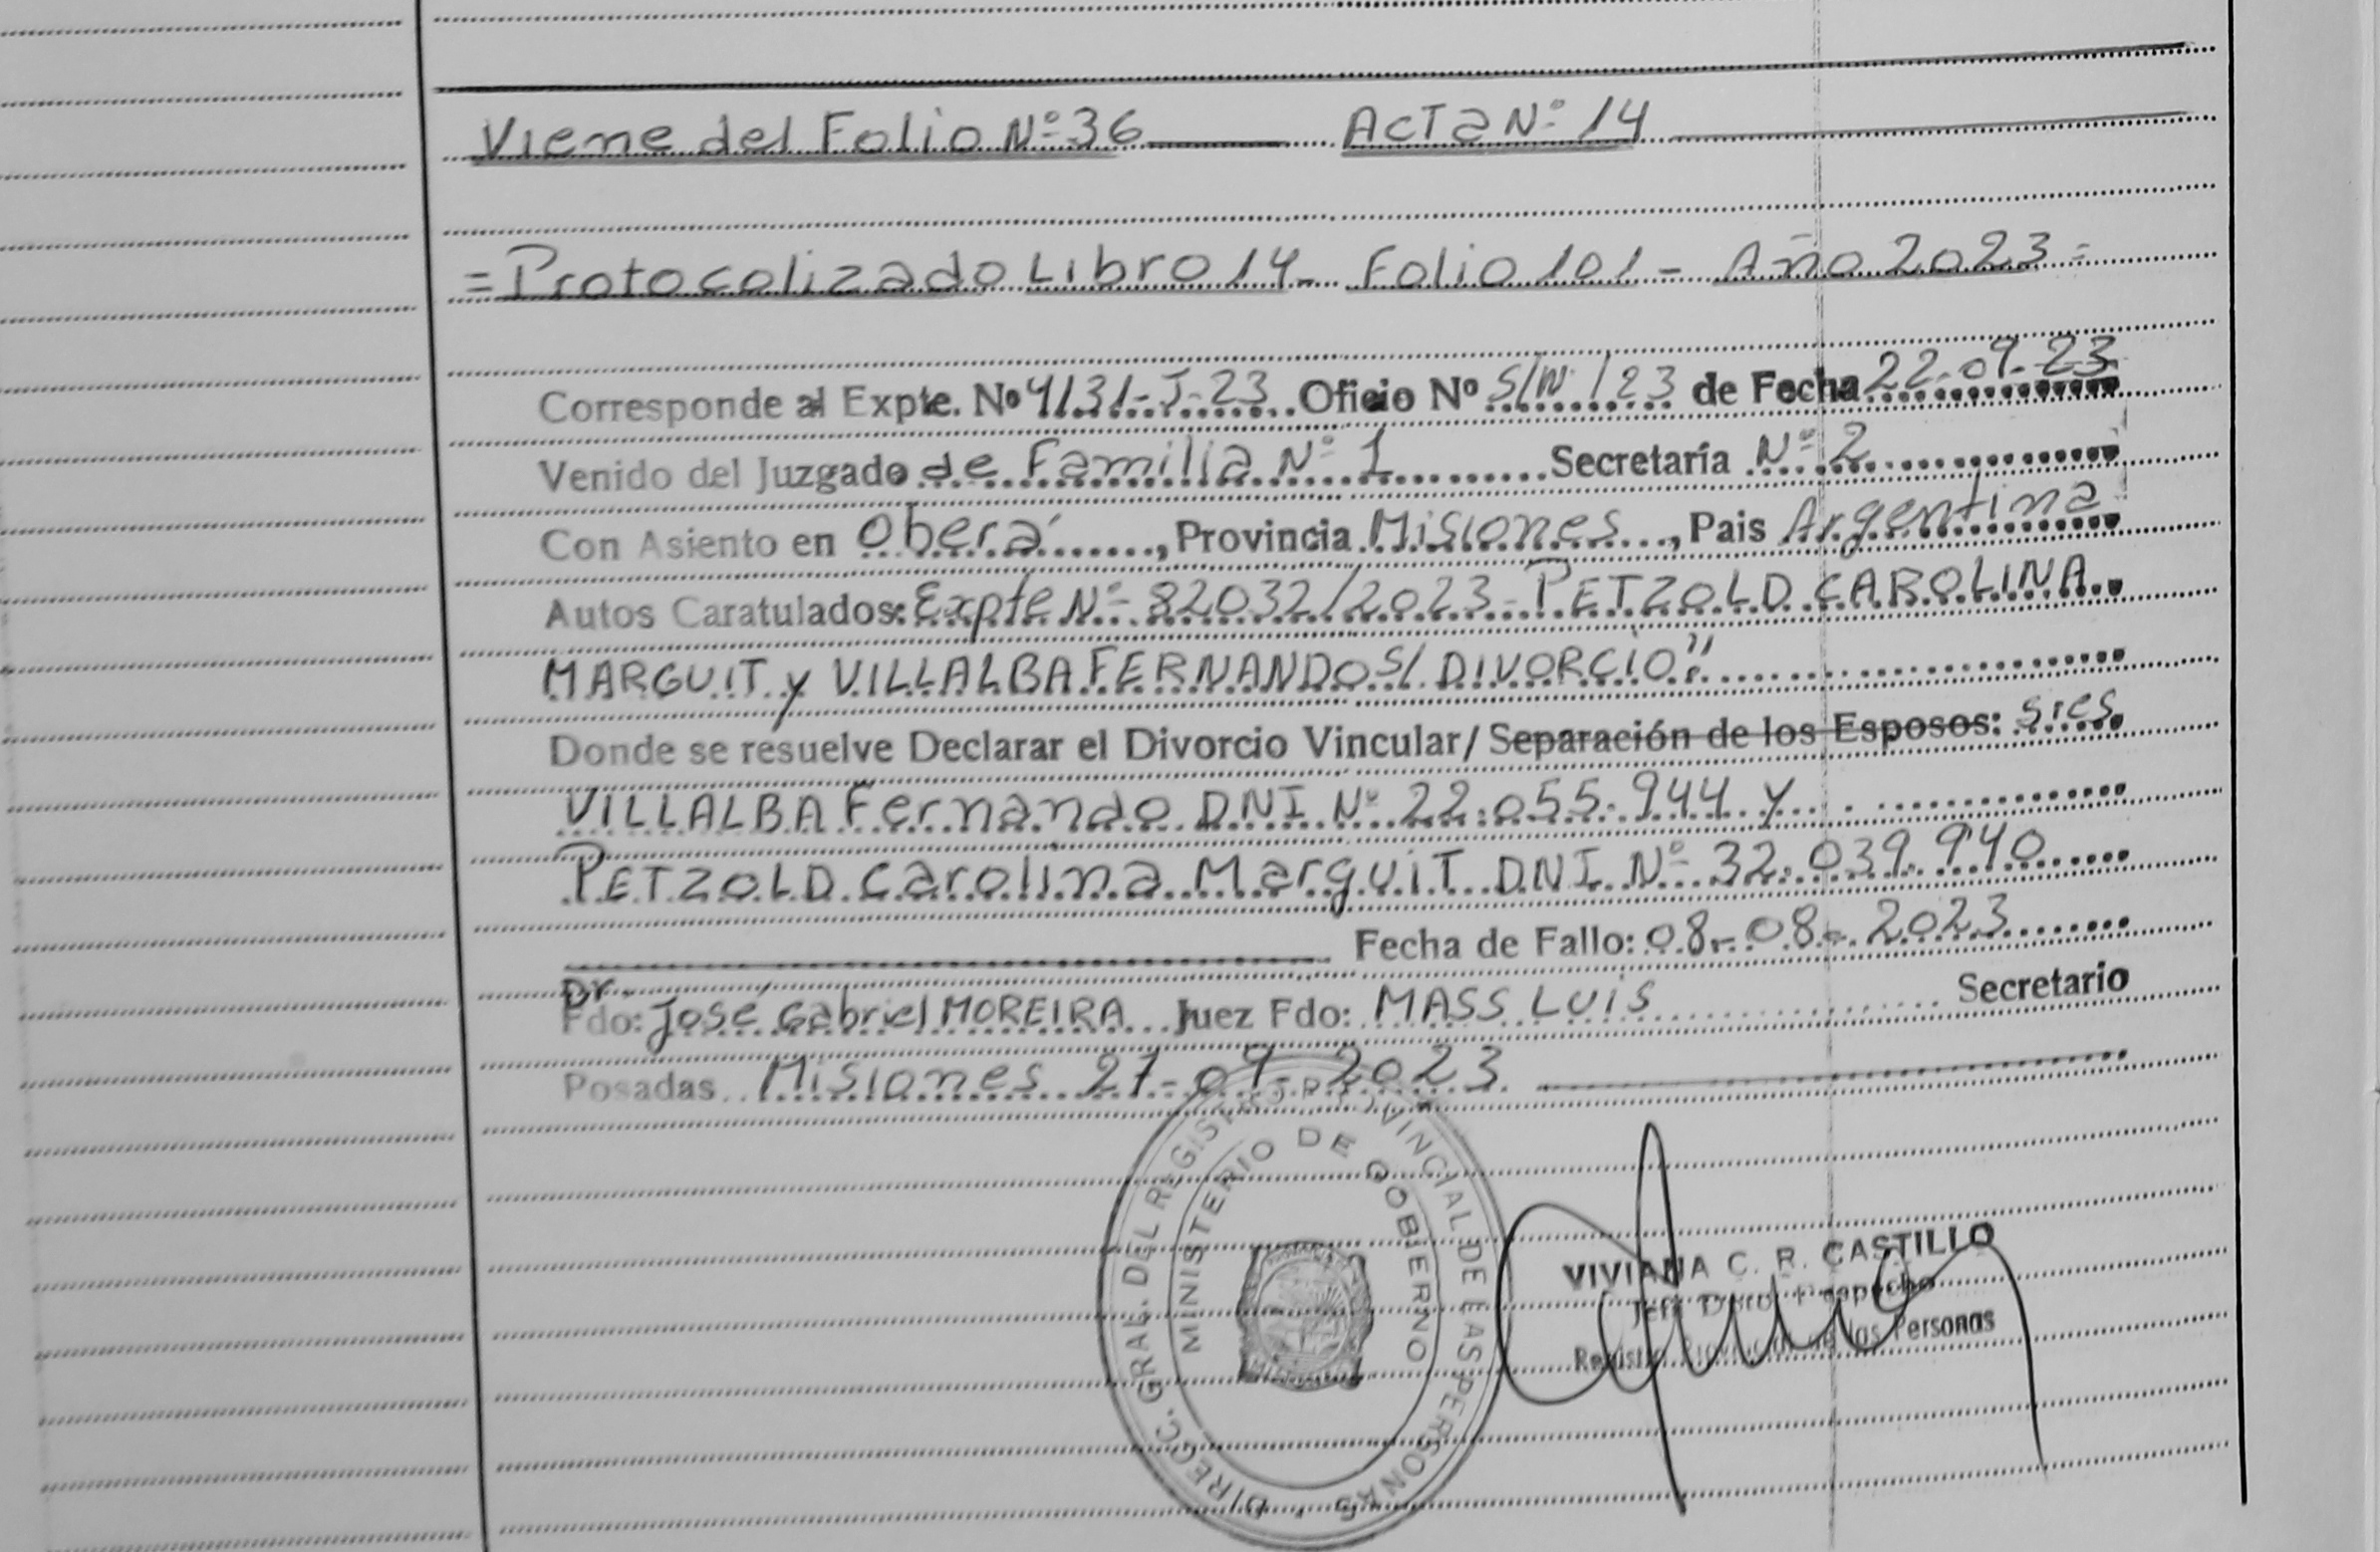 Viene del Folio Nº 36 ActaNº 14
=Protocolizado Libro 14- Folio 101- Año 2023=
Corresponde al Expte. Nº 4131-J-23 Oficio Nº S/N/23 de Fecha 22-09-23
Venido del Juzgado de Familia Nº 1 Secretaría Nº 2
Con Asiento en Oberá, Provincia Misiones, Pais Argentina
Autos Caratulados: Expte Nº 82032/2023-PETZOLD CAROLINA
MARGUIT y VILLALBA FERNANDO S/ DIVORCIO"
Donde se resuelve Declarar el Divorcio Vincular/ Separación de los Esposos: sres
VILLALBA Fernando DNI Nº 22.055.944 y
PETZOLD Carolina Marguit DNI Nº 32.039.940
Fecha de Fallo: 08-08-2023
Dr.
Fdo: José Gabriel MOREIRA Juez Fdo: MASS LUIS Secretario
Posadas Misiones 27-09-2023
DIRECC. GRAL. DEL REGISTRO PROVINCIAL DE LAS PERSONAS
MINISTERIO DE GOBIERNO
VIVIANA C. R. CASTILLO
Despacho
las Personas